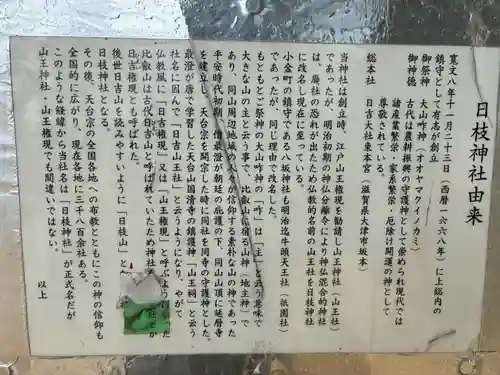 日枝神社由来
寛文八年十一月二十三日（西暦一六六八年）に上総内の
鎮守として有志が創立
御祭神　大山咋神（オオヤマクイノカミ）
御神徳　古代は農耕振興の守護神として崇められ現代では
諸産業繁栄・家系繁栄・厄除け開運の神として
尊敬されている。
総本社　日吉大社東本宮（滋賀県大津市坂本）
当神社は創立時、江戸山王権現を勧請し山王神社（山王社）
であったが、明治初期の神仏分離令により神仏混合的神社
は、廃社の恐れが出たため仏教的名前の山王社を日枝神社
に改名し現在に至っている。
小金町の鎮守である八坂神社も明治迄牛頭天王社（祇園社）
であったが、同じ理由で改名した。
もともとご祭神の大山咋神の「咋」は「主」と云う意味で
大きな山の主と云う事で、比叡山に宿る山神（地主神）で
あり、同山周辺地域の人々が信仰する素朴な山の神であった
平安時代初期、僧最澄が朝廷の庇護の下、同山山頂に延暦寺
を建立し、天台宗を開宗した時に同社を同寺の守護神とした。
最澄が唐で学習した天台山国清寺の鎮護神「山王祠」と云う
社名に因んで「日吉山王社」と云うようになり、やがて
仏教風に「日吉権現」又は「山王権現」と呼ぶ
比叡山は古代日吉山と呼ばれていたため神社
日吉権現とも呼ばれた。
後世日吉山を読みやすいように「日枝山」と
日枝神社となる。
その後、天台宗の全国各地への布教とともにこの神の信仰も
全国的に広がり、現在各地に三千八百余社ある。
このような経緯から当社名は「日枝神社」が正式名だが
山王神社・山王権現でも間違いではない。
以上